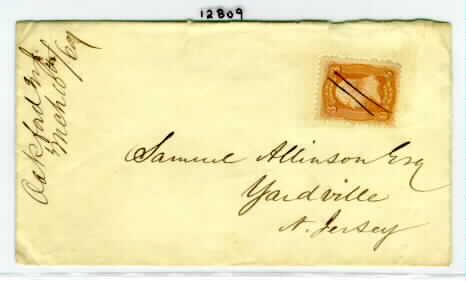 12809
Oakford N.J.
Mch 10th/69
Samuel Allinson Esq
Yardville
N. Jersey